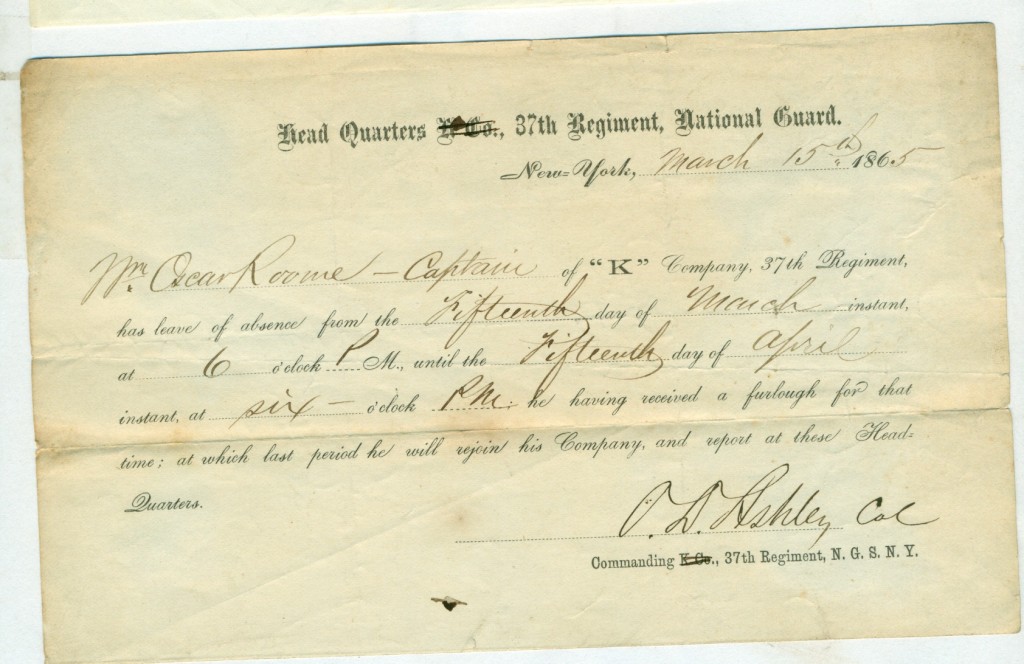 Head Quarters K Co., 37th Regiment, National Guard.
New-York, March 15th 1865
Wm. Oscar Roome – Captain of "K" Company, 37th Regiment,
has leave of absence from the Fifteenth day of March instant,
at 6 o'clock P M., until the Fifteenth day of April
instant, at six – o'clock P.M. he having received a furlough for that
time; at which last period he will rejoin his Company, and report at these Head=
Quarters.
O. D. Ashley Col
Commanding K Co., 37th Regiment, N. G. S. N. Y.